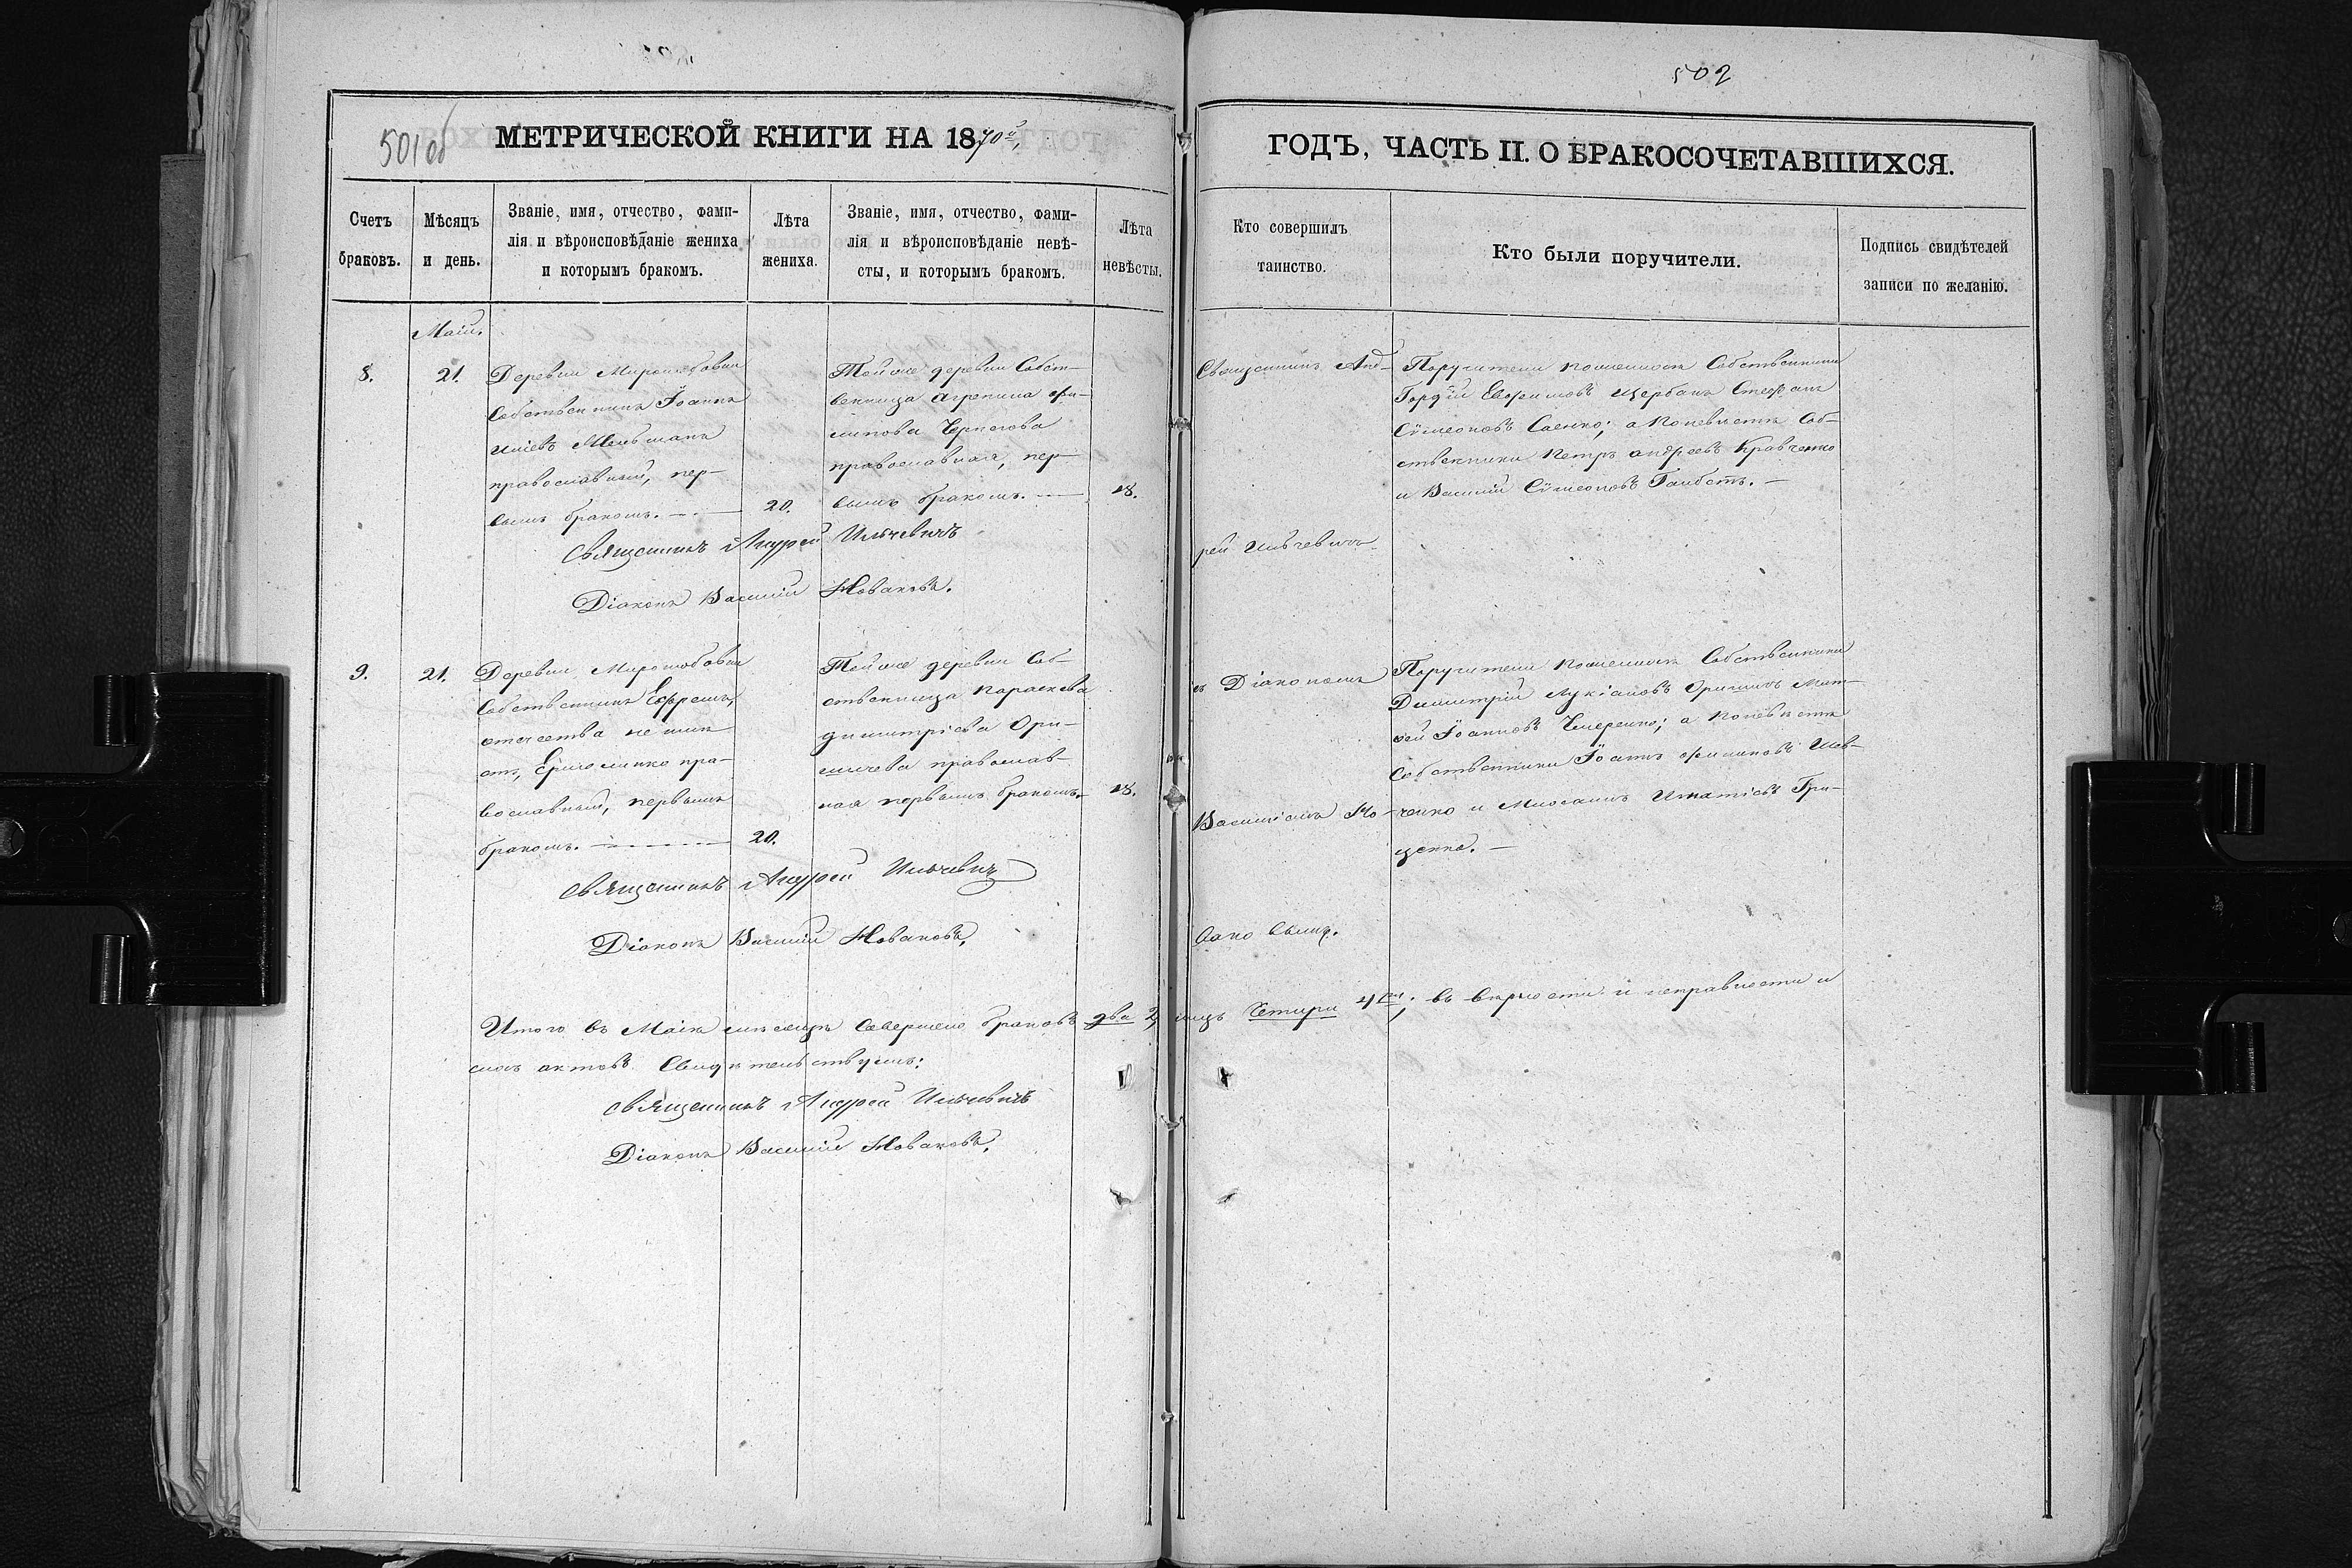 502
501 об
МЕТРИЧЕСКОЙ КНИГИ НА 1870й,
ГОДЪ, ЧАСТЬ II. О БРАКОСОЧЕТАВШИХСЯ.
Счетъ
браковъ.
Мѣсяцъ
и день.
Званіе, имя, отчество, фами-
лія и вѣроисповѣданіе жениха
и которымъ бракомъ.
Лѣта
жениха.
Званіе, имя, отчество, фами-
лія и вѣроисповѣданіе невѣ-
сты, и которымъ бракомъ.
Лѣта
невѣсты.
Кто совершилъ
таинство.
Кто были поручители.
Подпись свидѣтелей
записи по желанію.
Маій.
8.
21.
Деревни Миролюбовки
собственникъ Іоаннъ
православный, пер-
вымъ бракомъ.
20.
Тойже деревни собст-
венница Агрепина Фи-
липова
православная, пер-
вымъ бракомъ.
18.
Священникъ Анд-
рей Ильчевичъ
Поручители по женихѣ собственники
Гордій Евфимовъ Щербакъ Стефанъ
Сѵмеоновъ Саенко; а по невѣстѣ соб-
ственники Петръ Андреевъ Кравченко
и Василій Сѵмеоновъ
Священникъ Андрей Ильчевичъ
Діаконъ Василій Новаковъ.
9.
21.
Деревни Миролюбовки
собственникъ Ефремъ,
отечества не имѣ-
етъ, Ермоленко пра-
вославный, первымъ
бракомъ.
20.
Тойже деревни соб-
ственница Параскева
Димитріева Ори-
православ-
ная первымъ бракомъ.
18.
съ Діакономъ
Василіемъ Но-
ваковымъ.
Поручители по женихѣ собственники
Димитрій Лукіановъ Мат-
фей Іоанновъ Чмеренко; а по невѣстѣ
собственники Іоаннъ Филиповъ Шев-
ченко и Игнатіевъ Гри-
щенко.
Священникъ Андрей Ильчевичъ
Діаконъ Василій Новаковъ.
Итого въ Маіѣ мѣсяцѣ совершено браковъ два 2, лицъ четыри 4ри; въ вѣрности и исправности и
сихъ актовъ свидѣтельствуемъ:
Священникъ Андрей Ильчевичъ
Діаконъ Василій Новаковъ.